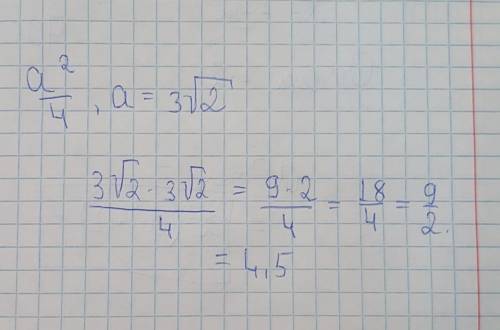 a²/4, a = 3√2
(3√2 · 3√2)/4 = (9 · 2)/4 = 18/4 = 9/2.
= 4,5